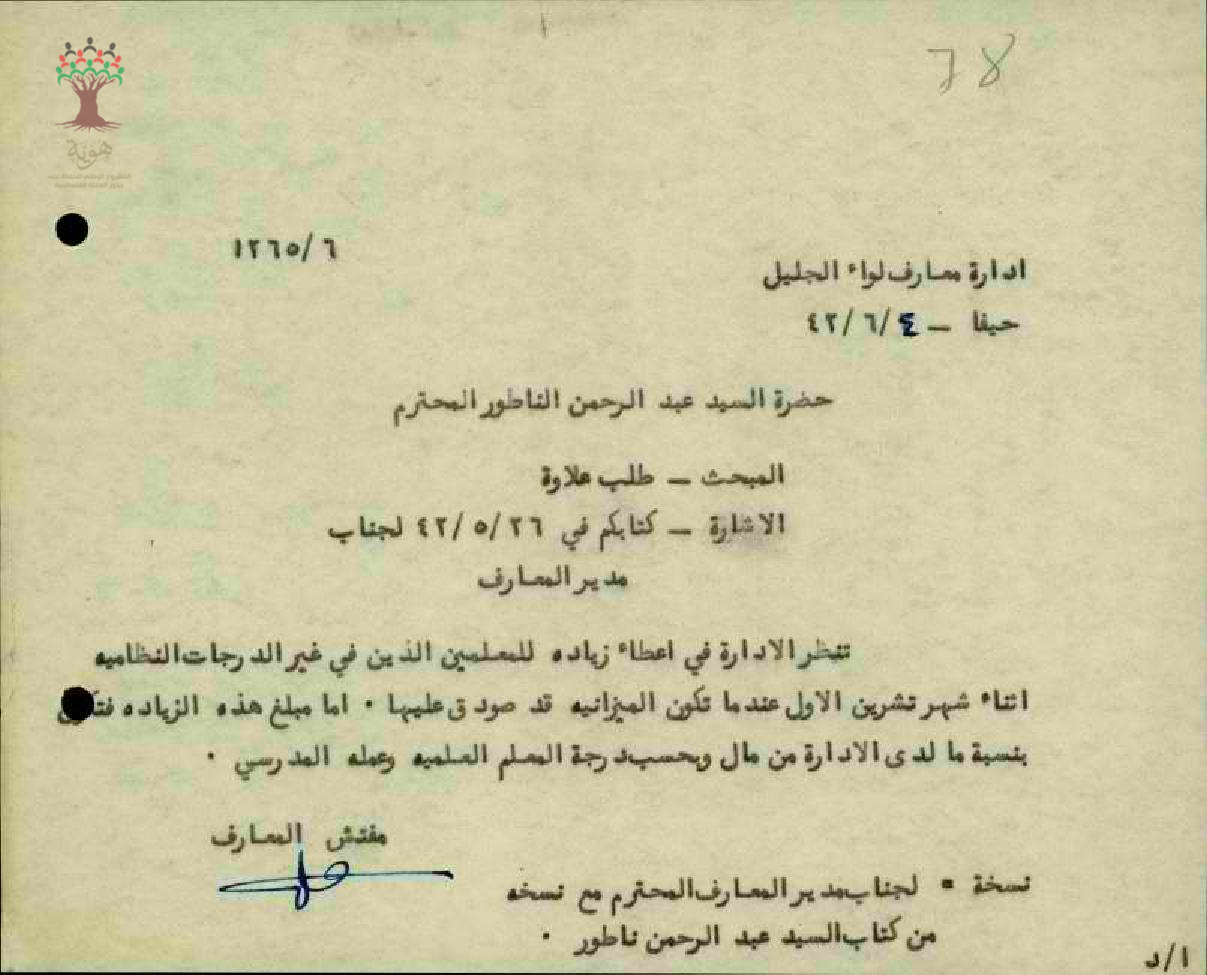 78
هوية
١٢٦٥/٦
ادارة معارف لواء الجليل
حيفا ــ ٤/٦/٤٢
حضرة السيد عبد الرحمن الناطور المحترم
المبحث ــ طلب علاوة
الاشارة ــ كتابكم في ٢٦/٥/٤٢ لجناب
مدير المعارف
تنظر الادارة في اعطاء زياده للمعلمين الذين في غير الدرجات النظاميه
اثناء شهر تشرين الاول عندما تكون الميزانيه قد صودق عليها ٠ اما مبلغ هذه الزياده
بنسبة ما لدى الادارة من مال وبحسب درجة المعلم العلميه وعمله المدرسي ٠
مفتش المعارف
نسخة = لجناب مدير المعارف المحترم مع نسخه
من كتاب السيد عبد الرحمن ناطور ٠
ا/د